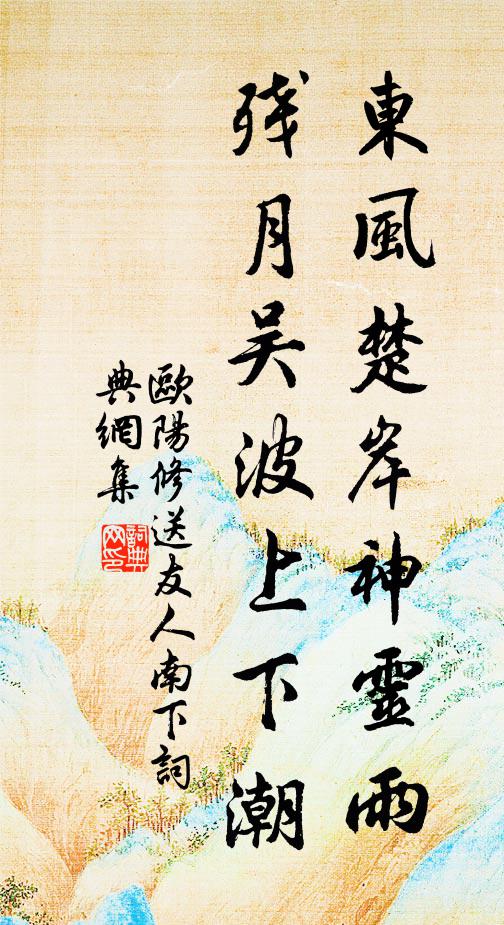 東風楚岸神靈雨
残月吴波上下潮
歐陽修送友人南下詞
典網集
詞典
网印